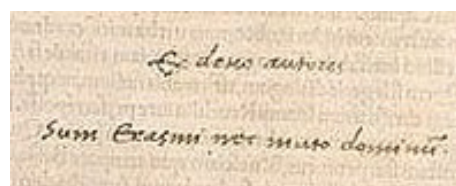 Ex dono autoris
Sum Erasmi nec muto dominū.